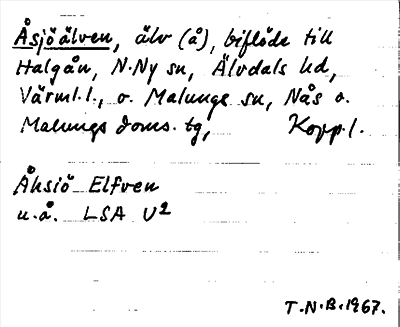 Åsjöälven, älv (å), biflöde till
Halgån, N. Ny sn, Älvdals hd,
Värml.l., o. Malungs sn, Nås o.
Malungs doms. tg, Kopp.l.
Åhsiö Elfven
u.å. LSA U2
T.N.B. 1967.